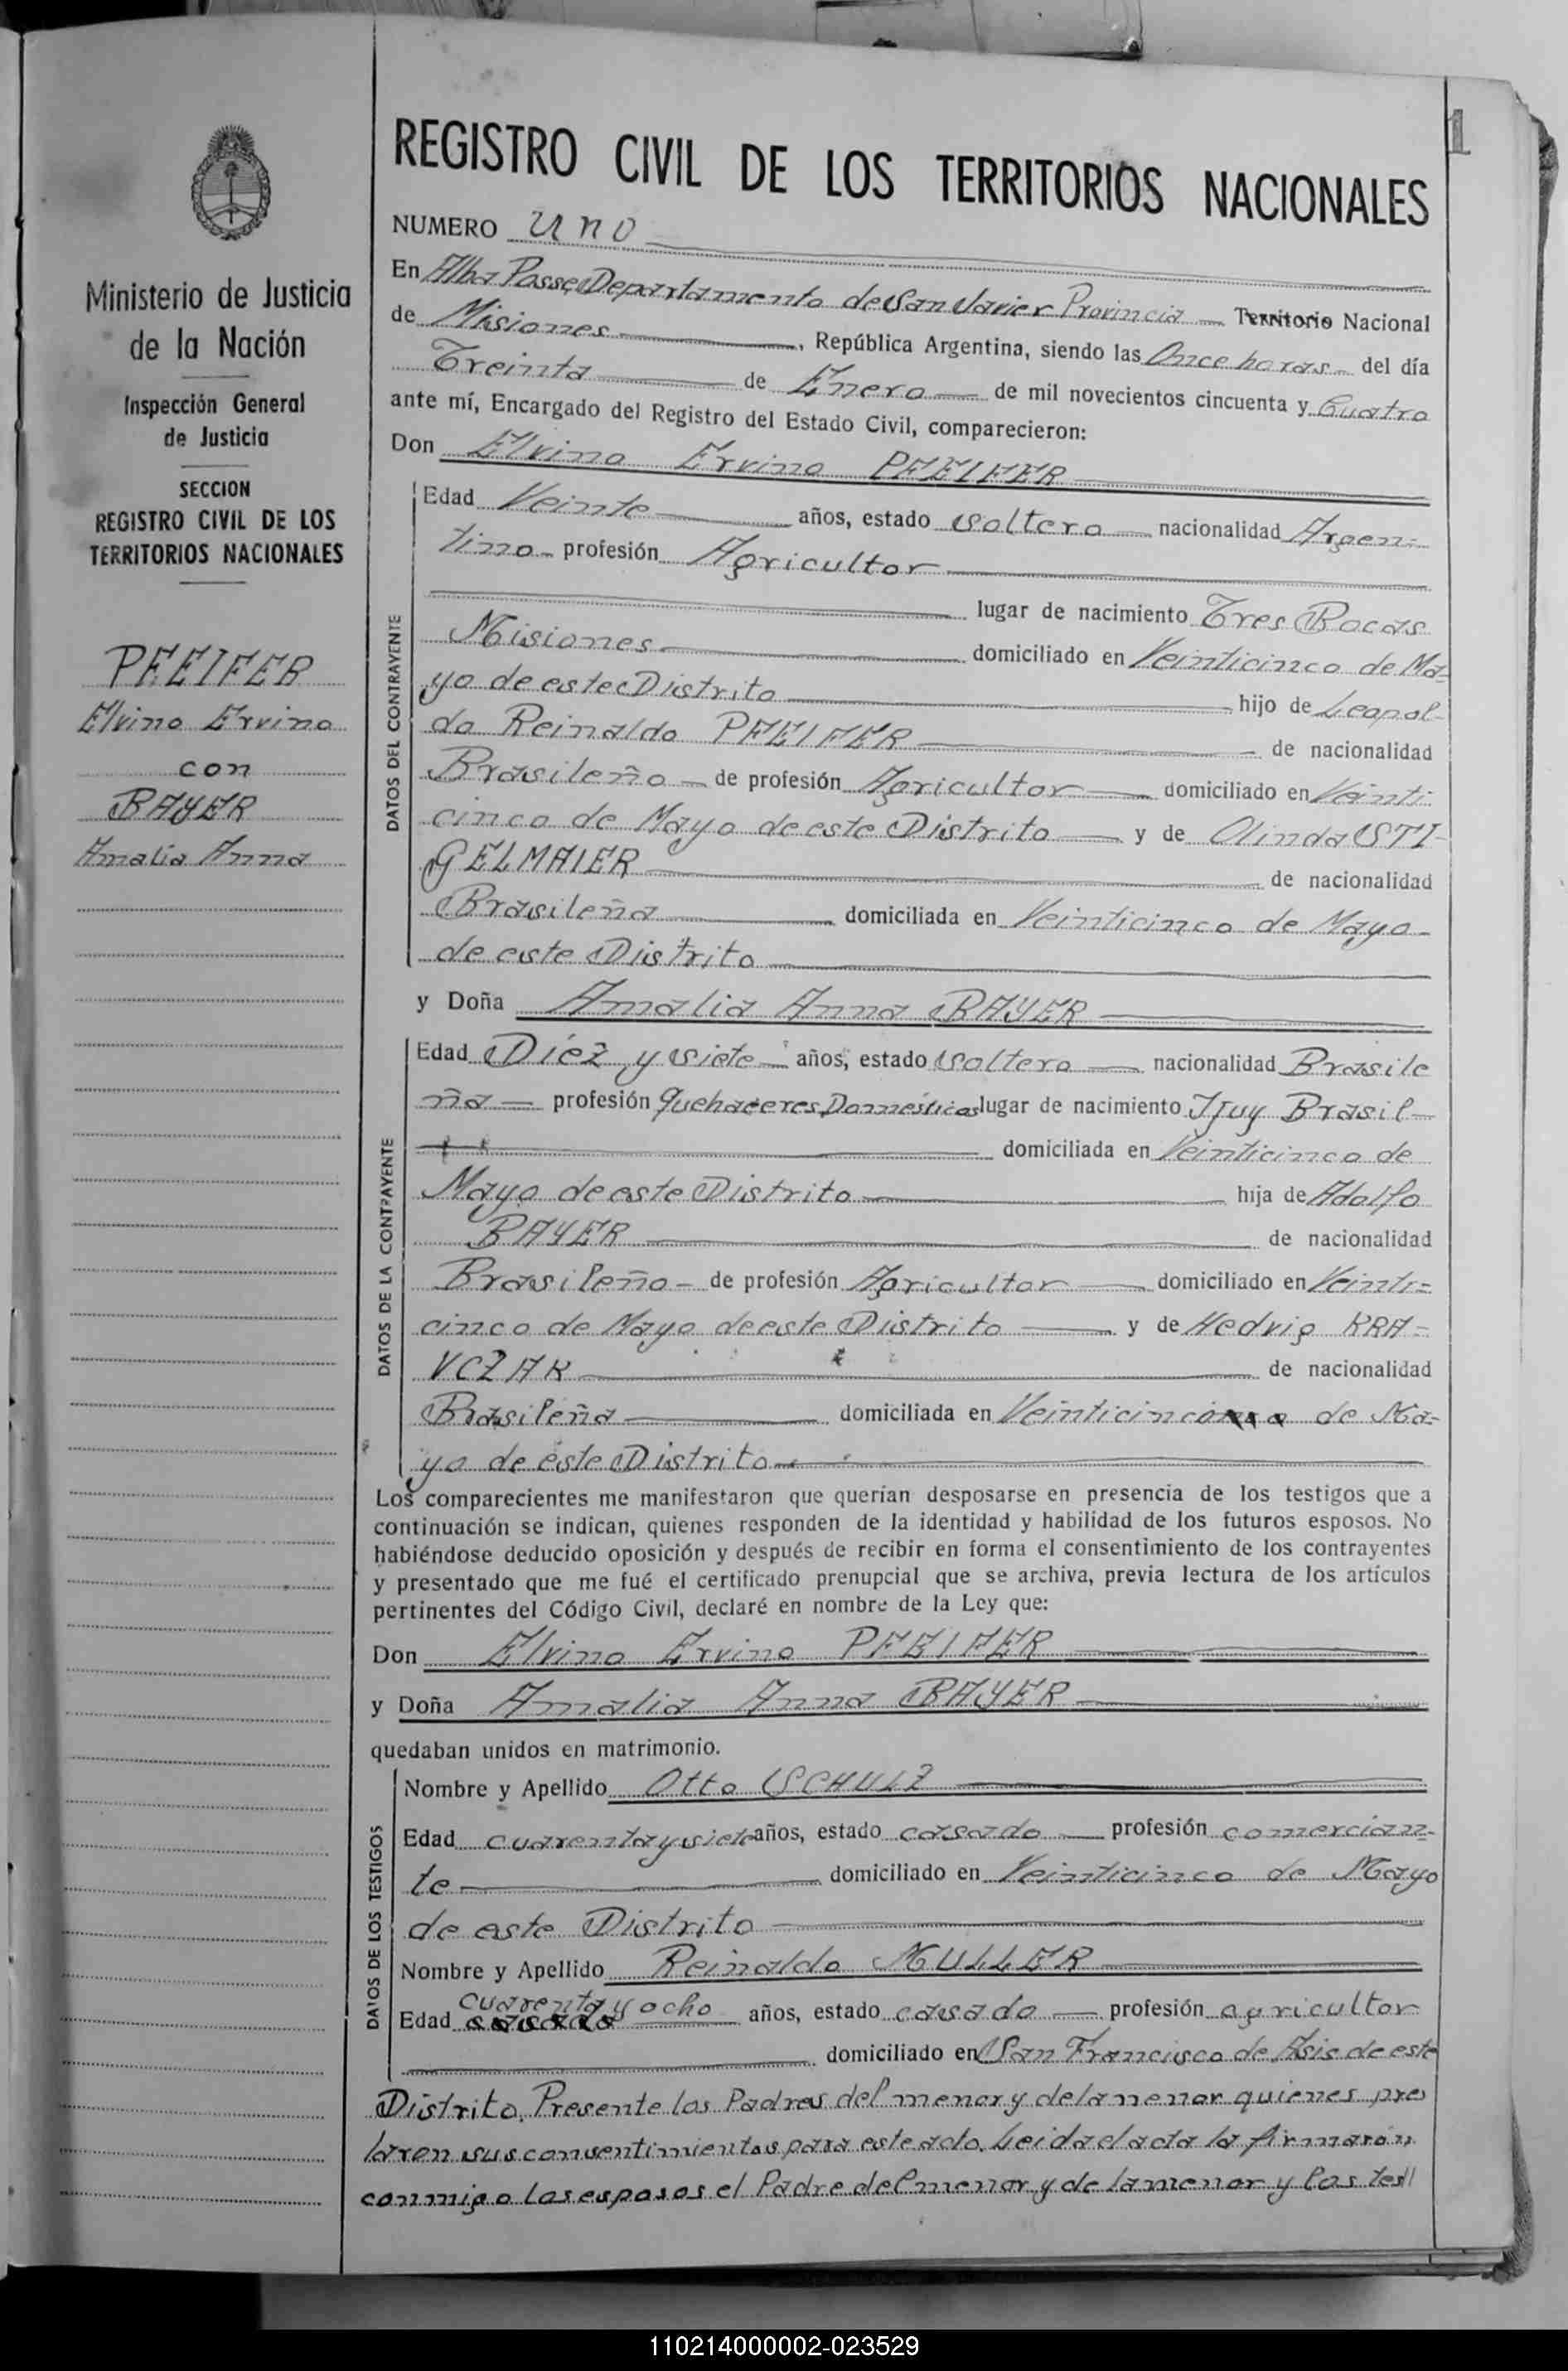 1
Ministerio de Justicia
de la Nación
Inspección General
de Justicia
SECCION
REGISTRO CIVIL DE LOS
TERRITORIOS NACIONALES
PFEIFER
Elvino Ervino
con
BAYER
Amalia Anna
REGISTRO CIVIL DE LOS TERRITORIOS NACIONALES
NUMERO Uno
En Alba Posse, Departamento de San Javier Provincia Territorio Nacional
de Misiones, República Argentina, siendo las Once horas del día
Treinta de Enero de mil novecientos cincuenta y Cuatro
ante mí, Encargado del Registro del Estado Civil, comparecieron:
Don Elvino Ervino PFEIFER
DATOS DEL CONTRAYENTE
Edad Veinte años, estado Soltero nacionalidad Argen-
tino profesión Agricultor
lugar de nacimiento Tres Bocas
Misiones domiciliado en Veinticinco de Ma-
yo de este Distrito hijo de Leopol-
do Reinaldo PFEIFER de nacionalidad
Brasileño de profesión Agricultor domiciliado en Veinti-
cinco de Mayo de este Distrito y de Olinda STI-
GELMAIER de nacionalidad
Brasileña domiciliada en Veinticinco de Mayo
de este Distrito
y Doña Amalia Anna BAYER
DATOS DE LA CONTRAYENTE
Edad Diez y siete años, estado Soltera nacionalidad Brasile
ña profesión Quehaceres Domésticos lugar de nacimiento Ijuy Brasil
domiciliada en Veinticinco de
Mayo de este Distrito hija de Adolfo
BAYER de nacionalidad
Brasileño de profesión Agricultor domiciliado en Veinti-
cinco de Mayo de este Distrito y de Hedvig KRA-
VCZAK de nacionalidad
Brasileña domiciliada en Veinticinco de Ma-
yo de este Distrito
Los comparecientes me manifestaron que querían desposarse en presencia de los testigos que a
continuación se indican, quienes responden de la identidad y habilidad de los futuros esposos. No
habiéndose deducido oposición y después de recibir en forma el consentimiento de los contrayentes
y presentado que me fué el certificado prenupcial que se archiva, previa lectura de los artículos
pertinentes del Código Civil, declaré en nombre de la Ley que:
Don Elvino Ervino PFEIFER
y Doña Amalia Anna BAYER
quedaban unidos en matrimonio.
DATOS DE LOS TESTIGOS
Nombre y Apellido Otto SCHULZ
Edad cuarenta y siete años, estado casado profesión comercian-
te domiciliado en Veinticinco de Mayo
de este Distrito
Nombre y Apellido Reinaldo MULLER
Edad cuarenta y ocho años, estado casado profesión agricultor
domiciliado en San Francisco de Asis de este
Distrito. Presente los Padres del menor y de la menor quienes pres
taron sus consentimientos para este acto. Leida el acta la firmaron
conmigo los esposos el Padre del menor y de la menor y los testi
110214000002-023529